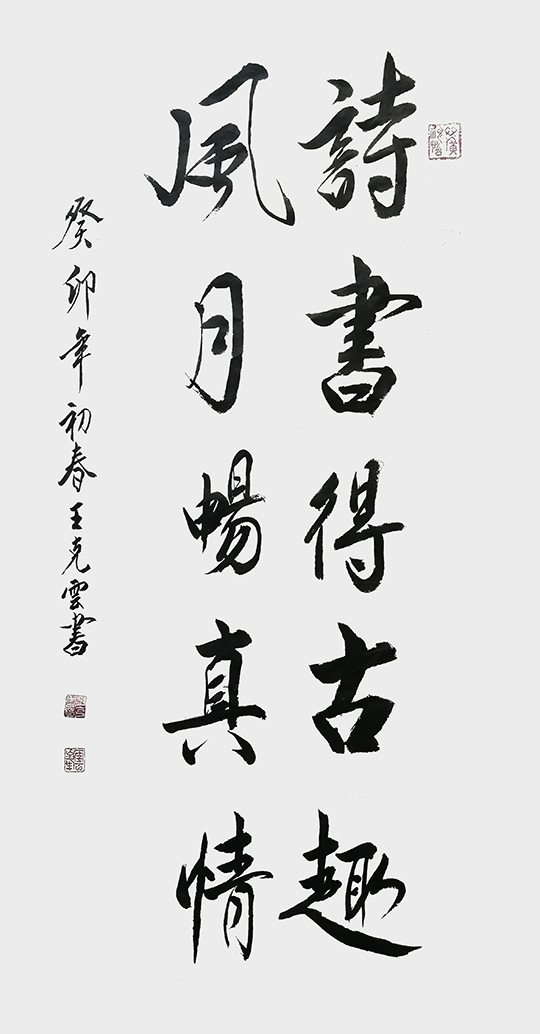 詩書得古趣
風月暢真情
癸卯年初春王克雲書